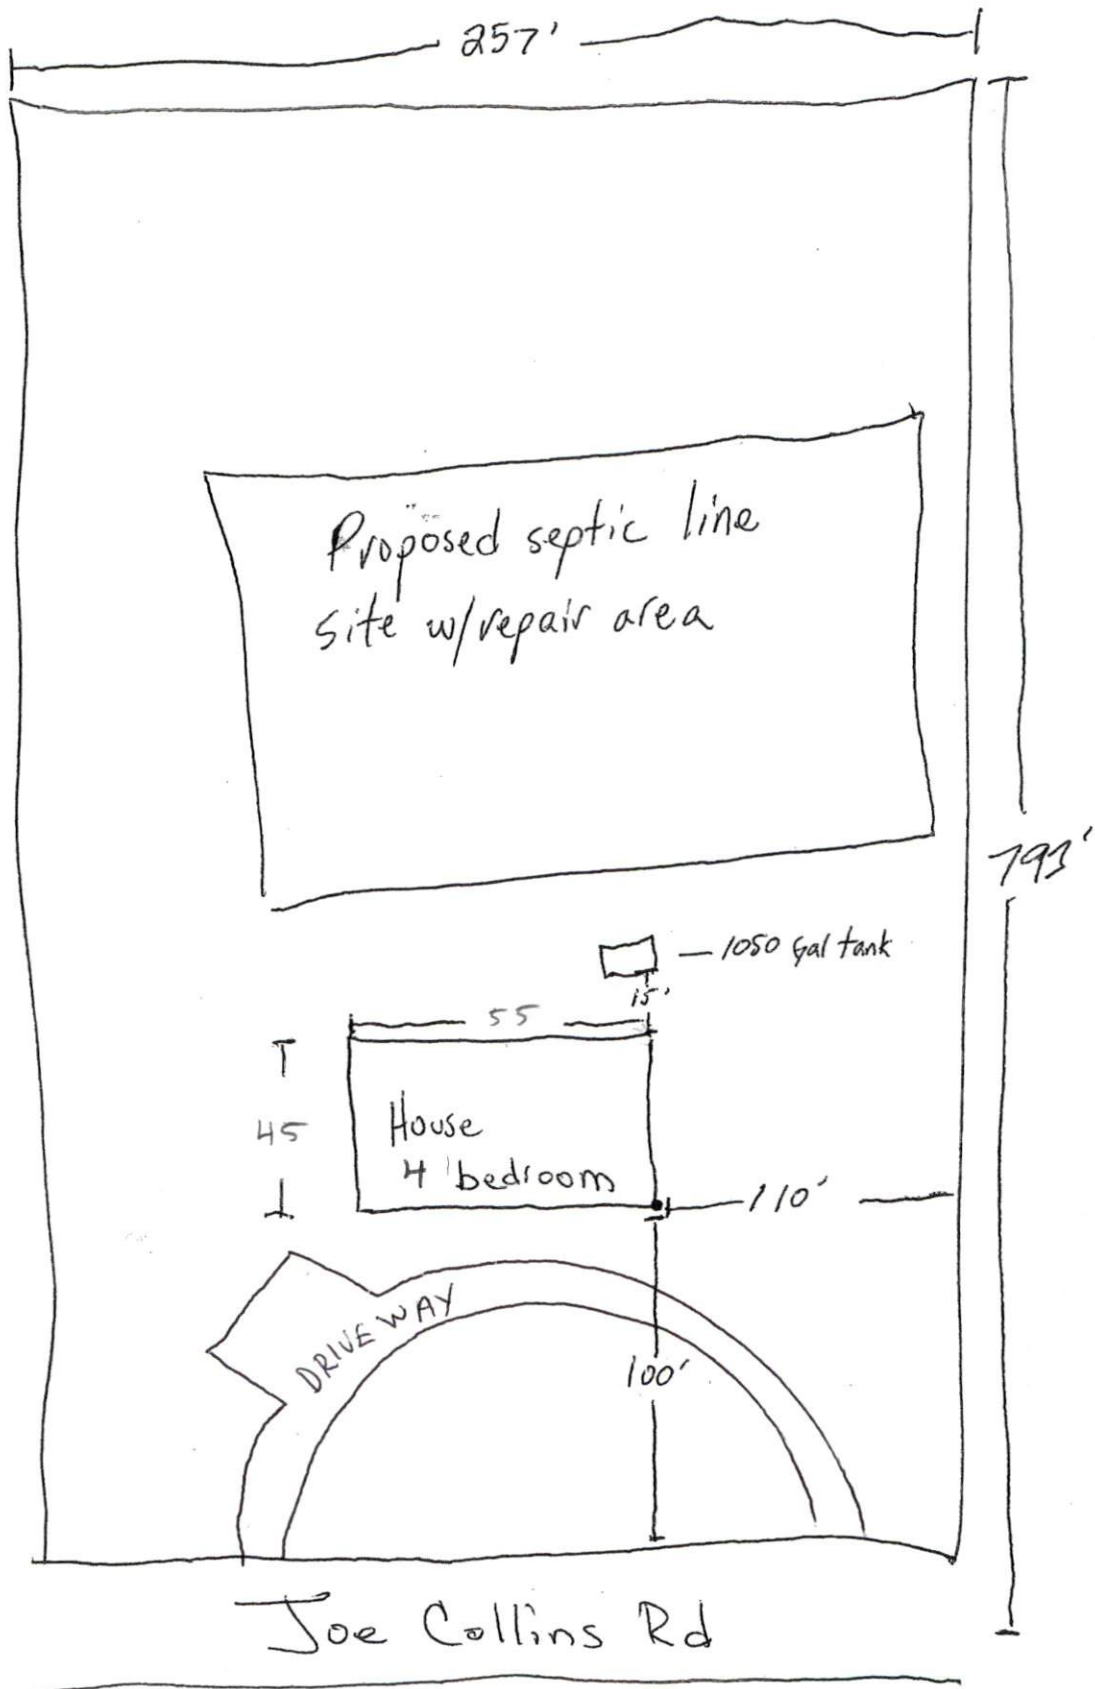 257'
Proposed septic line
site w/repair area
793'
— 1050 gal tank
15'
55
45
House
4 bedroom
110'
DRIVEWAY
100'
Joe Collins Rd